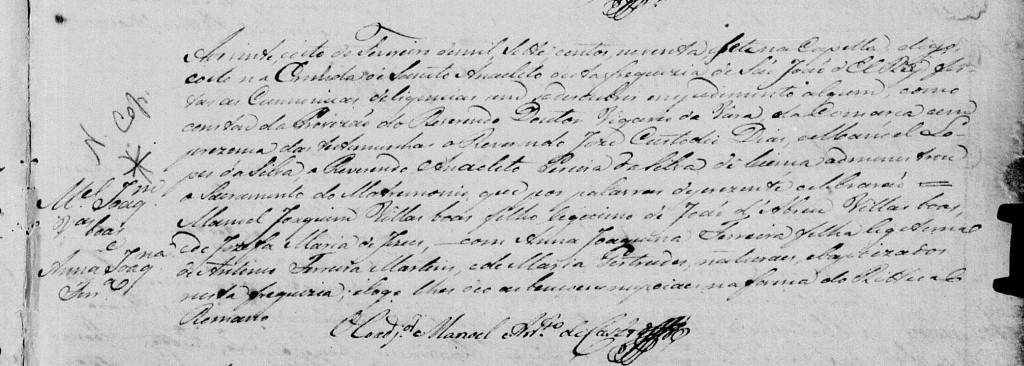 N. Cap.
M.el Joaq.m
V.as boas
Anna Joaq.na
Frr.a
Aos vinte, e oito de Fevereiro de mil sette centos, noventa e sete na Capella, digo,
coito na Ermida de Santo Anacleto desta freguezia de São João d'El Rey, fei-
tas as Canonicas deligencias sem se descobrir impedimento algum, como
constou da Provizão do Reverendo Doutor Vigario da Vara, da Comarca, em
prezença das testemunhas o Reverendo José Custodio Dias, e Manoel Lo-
pes da Silva o Reverendo Anacleto Pereira da Silva de licença administrou
o Sacramento do Matrimonio, que por palavras de prezente celebrarão =
Manoel Joaquim Villas boas filho legitimo de João d'Abreu Villas boas,
e de Josefa Maria de Jesus, — com Anna Joaquina Ferreira filha legitima
de Antonio Ferreira Martins, e de Maria Gertrudes, naturaes, e baptizados
nesta freguezia; e logo lhes deo as bençoens nupciaes na forma do Ritual
Romano
O Coadj.or Manoel Ant.o de Castro